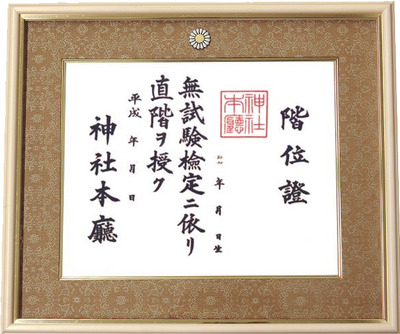 階位證
神社本廳
年月日生
無試驗檢定ニ依リ
直階ヲ授ク
平成 年 月 日
神社本廳